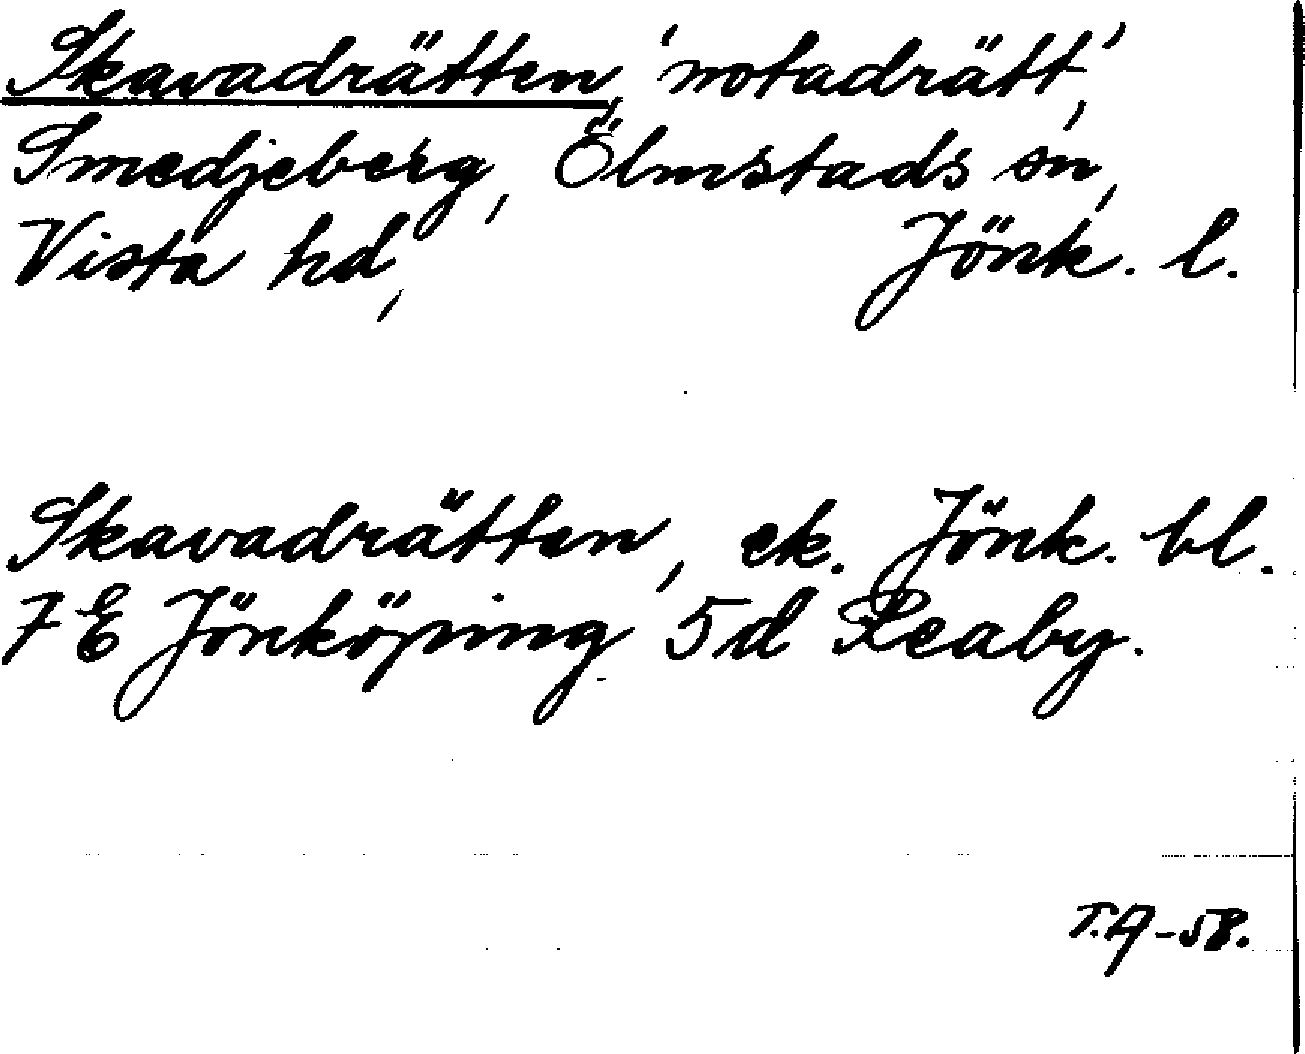 Skavadrätten, 'notadrätt',
Smedjeberg, Ölmstads sn,
Vista hd, Jönk. l.
Skavadrätten, ek. Jönk. bl.
7 E Jönköping 5d Reaby.
T.A-58.